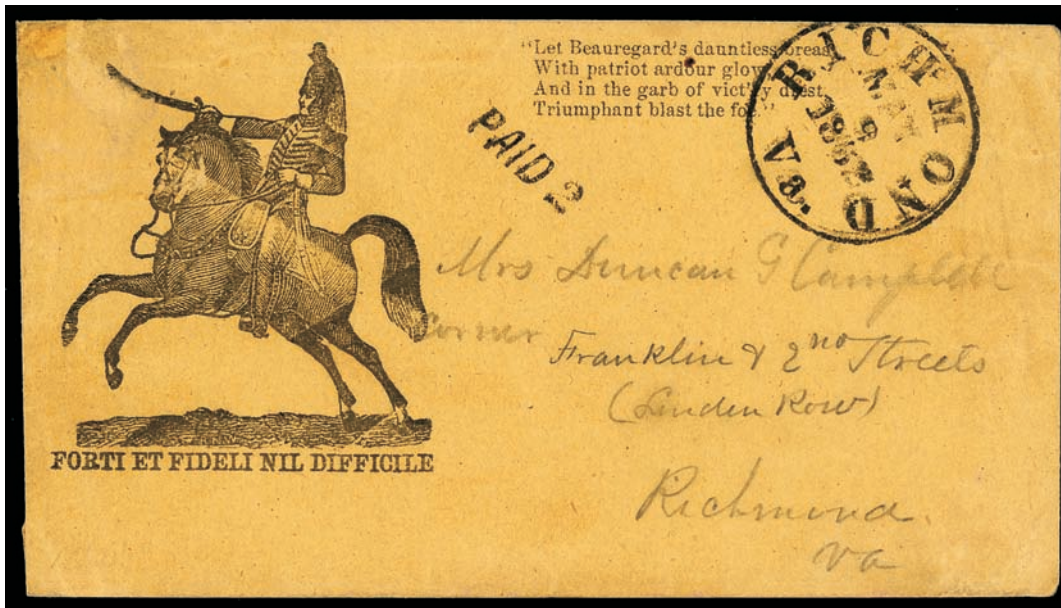 "Let Beauregard's dauntless breas
With patriot ardour glow
And in the garb of vict'ry drest,
Triumphant blast the foe."
RICHMOND Va.
MAY
9
1862
PAID 2
Mrs Duncan G Campbell
Corner Franklin & 2nd Streets
(Linden Row)
Richmond.
Va
FORTI ET FIDELI NIL DIFFICILE